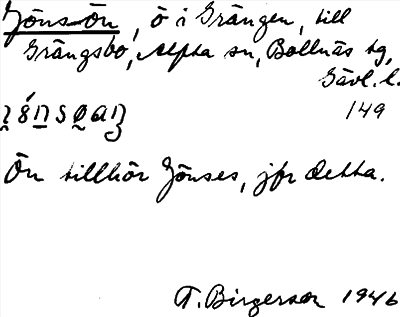 Jöns-ön, ö i Grängen, till
Grängsbo, Alfta sn, Bollnäs tg,
Gävl. l.
149
Ön tillhör Jönses, jfr detta.
T. Birgersson 1946